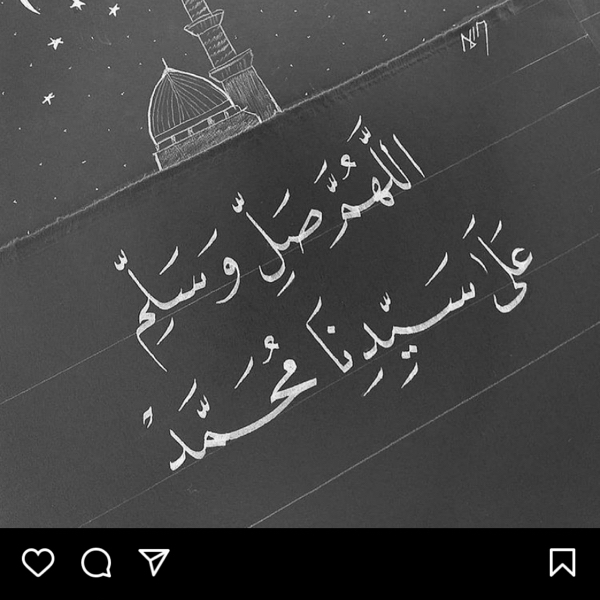 اللَّهُمَّ صَلِّ وَسَلِّم
عَلَى سَيِّدِنَا مُحَمَّدْ